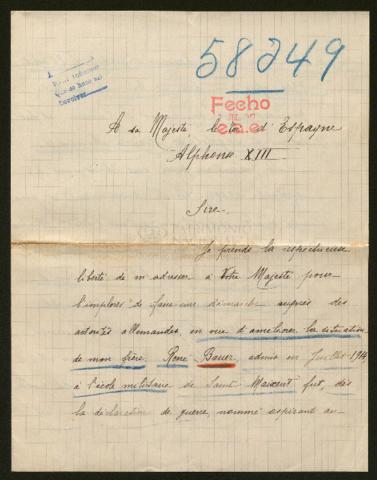 58249
Fecho
A sa Majesté le roi d'Espagne
Alphonse XIII
Sire,
Je prends la respectueuse
liberté de m'adresser à Votre Majesté pour
l'implorer de faire une démarche auprès des
autorités allemandes en vue d'améliorer la situation
de mon frère. René Bauer admis en Juillet 1914
à l'école militaire de Saint Maixent fut, dès
la déclaration de guerre nommé aspirant au